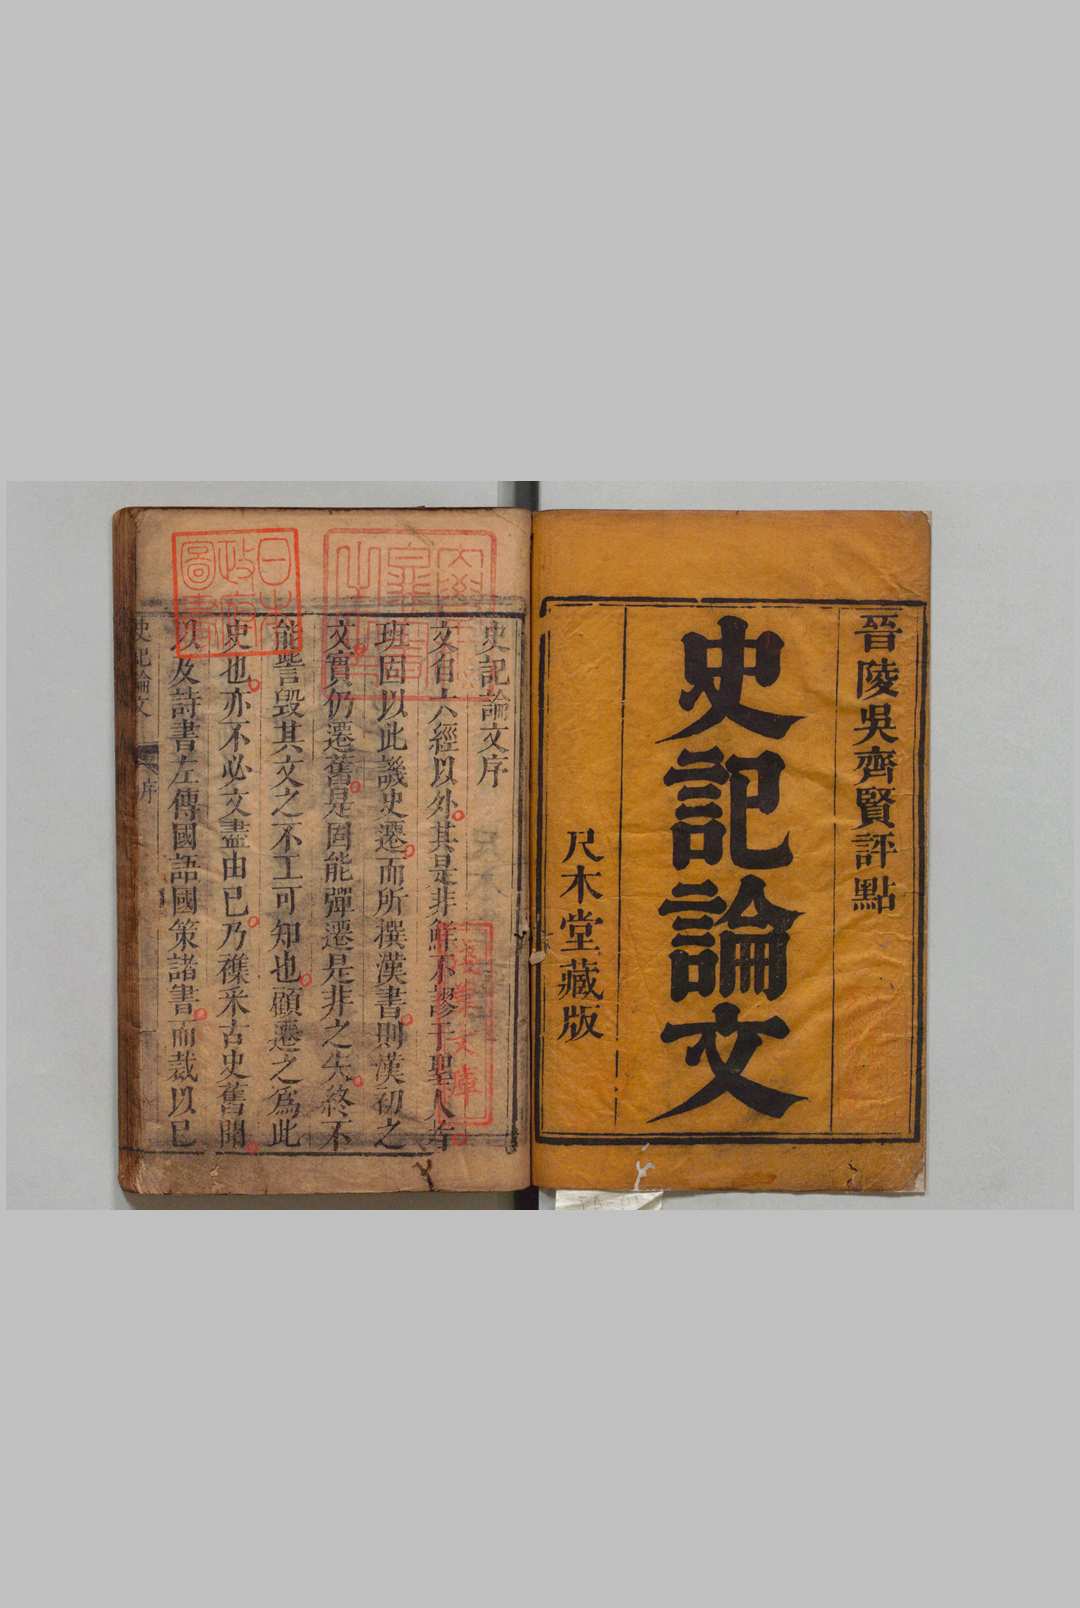 晉陵吳齊賢評點
史記論文
尺木堂藏版
史記論文序
文自六經以外其是非鮮不謬于聖人者
班固以此譏史遷而所撰漢書則漢初之
文實仍遷舊是固能彈遷是非之失終不
能訾毀其文之不工可知也顧遷之爲此
史也亦不必文盡由已乃襍采古史舊聞
以及詩書左傳國語國策諸書而裁以已
史記論文 序
日本政府圖書
淺草文庫